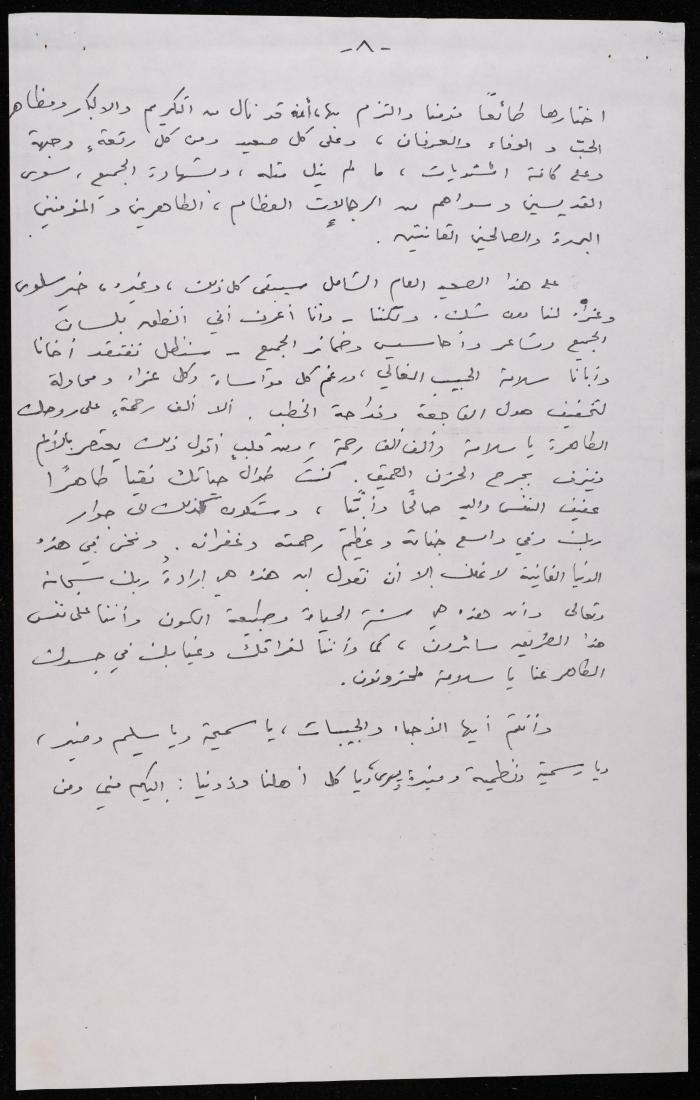 -٨-
اختارها طائعًا مؤمنا والتزم بها، أنه قد نال من التكريم والاكبار ومظاهر
الحبّ و الوفاء والعرفان ، وعلى كل صعيد ومن كل رقعةٍ وجهة
وعلى كافة المستويات ، ما لم ينل مثله ، وبشهادة الجميع ، سوى
القديسين وسواهم من الرجالات العظام ، الطاهرين والمؤمنين
البررة والصالحين القانتين .
على هذا الصعيد العام الشامل سيبقى كل ذلك ، وغيره ، خير سلوى
وعزاء لنا دون شك . ولكننا - وأنا أعرف أني أنطق بلسان
الجميع ومشاعر وأحاسيس وضمائر الجميع - سنظل نفتقد أخانا
وأبانا سلامة الحبيب الغالي ، ورغم كل مؤاساة وكل عزاء ومحاولة
لتخفيف هول الفاجعة وفداحة الخطب . ألا ألف رحمةٍ على روحك
الطاهرة يا سلامة وألف ألف رحمة ، ومن قلبٍ أقول ذلك يعتصر بالألم
وينزف بجرح الحزن العميق . كنتَ طوال حياتك نقيا طاهرًا
عفيف النفس واليد صالحًا وأبيًّا ، وستكون كذلك في جوار
ربك وفي واسع جنانه وعظيم رحمته وغفرانه . ونحن في هذه
الدنيا الفانية لا نملك إلا أن نقول ان هذه هي إرادةُ ربك سبحانه
وتعالى وأن هذه هي سنة الحياة وطبيعة الكون وأننا على نفس
هذا الطريق سائرون ، كما وأننا لفراقك وغيابك في جسدك
الطاهر عنا يا سلامة لمحزونون .
وأنتم أيها الأحباء والحبيبات ، يا سميحة ويا سليم ومنير ،
ويا رسمية ونظمية ومنيرة ويسرى ويا كل أهلنا وذوينا : إليكم مني ومن